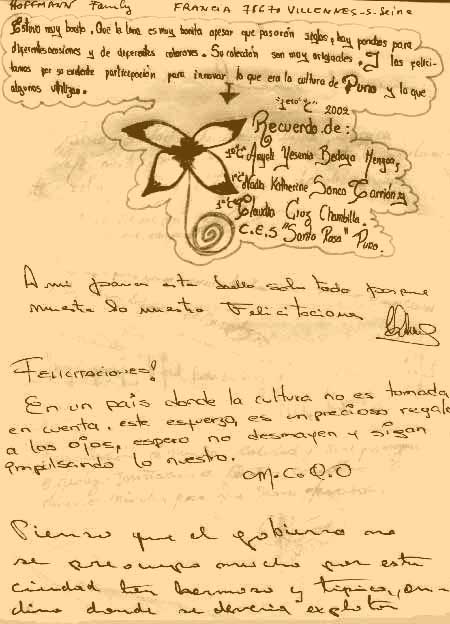 HOFFMANN Family FRANCIA 78670 VILLENNES-S-Seine
Estuvo muy bonito. Que la lana es muy bonita apesar que pasarón siglos, hay ponchos para
diferentes ocasiones y de diferentes colores. Su colección son muy originales. Y los felici-
tamos por su evidente participación para innovar lo que era la cultura de Puno y lo que
algunos utilizan.
2002
Recuerdo de:
Yesenia Bedoya
Nadia Katherine Sonco Carrión
Claudia Cruz Chambilla.
C.E.S "Santa Rosa" Puno.
A mi parecer esta bello sobre todo porque
muestra lo nuestro Felicitaciones
FELICITACIONES!
En un país donde la cultura no es tomada
en cuenta, este esfuerzo, es un precioso regalo
a los ojos, espero no desmayen y sigan
impulsando lo nuestro.
M.C.Q.O
Pienso que el gobierno no
se preocupa mucho por esta
ciudad tan hermoso y tipico, an-
dino donde se deveria explotar